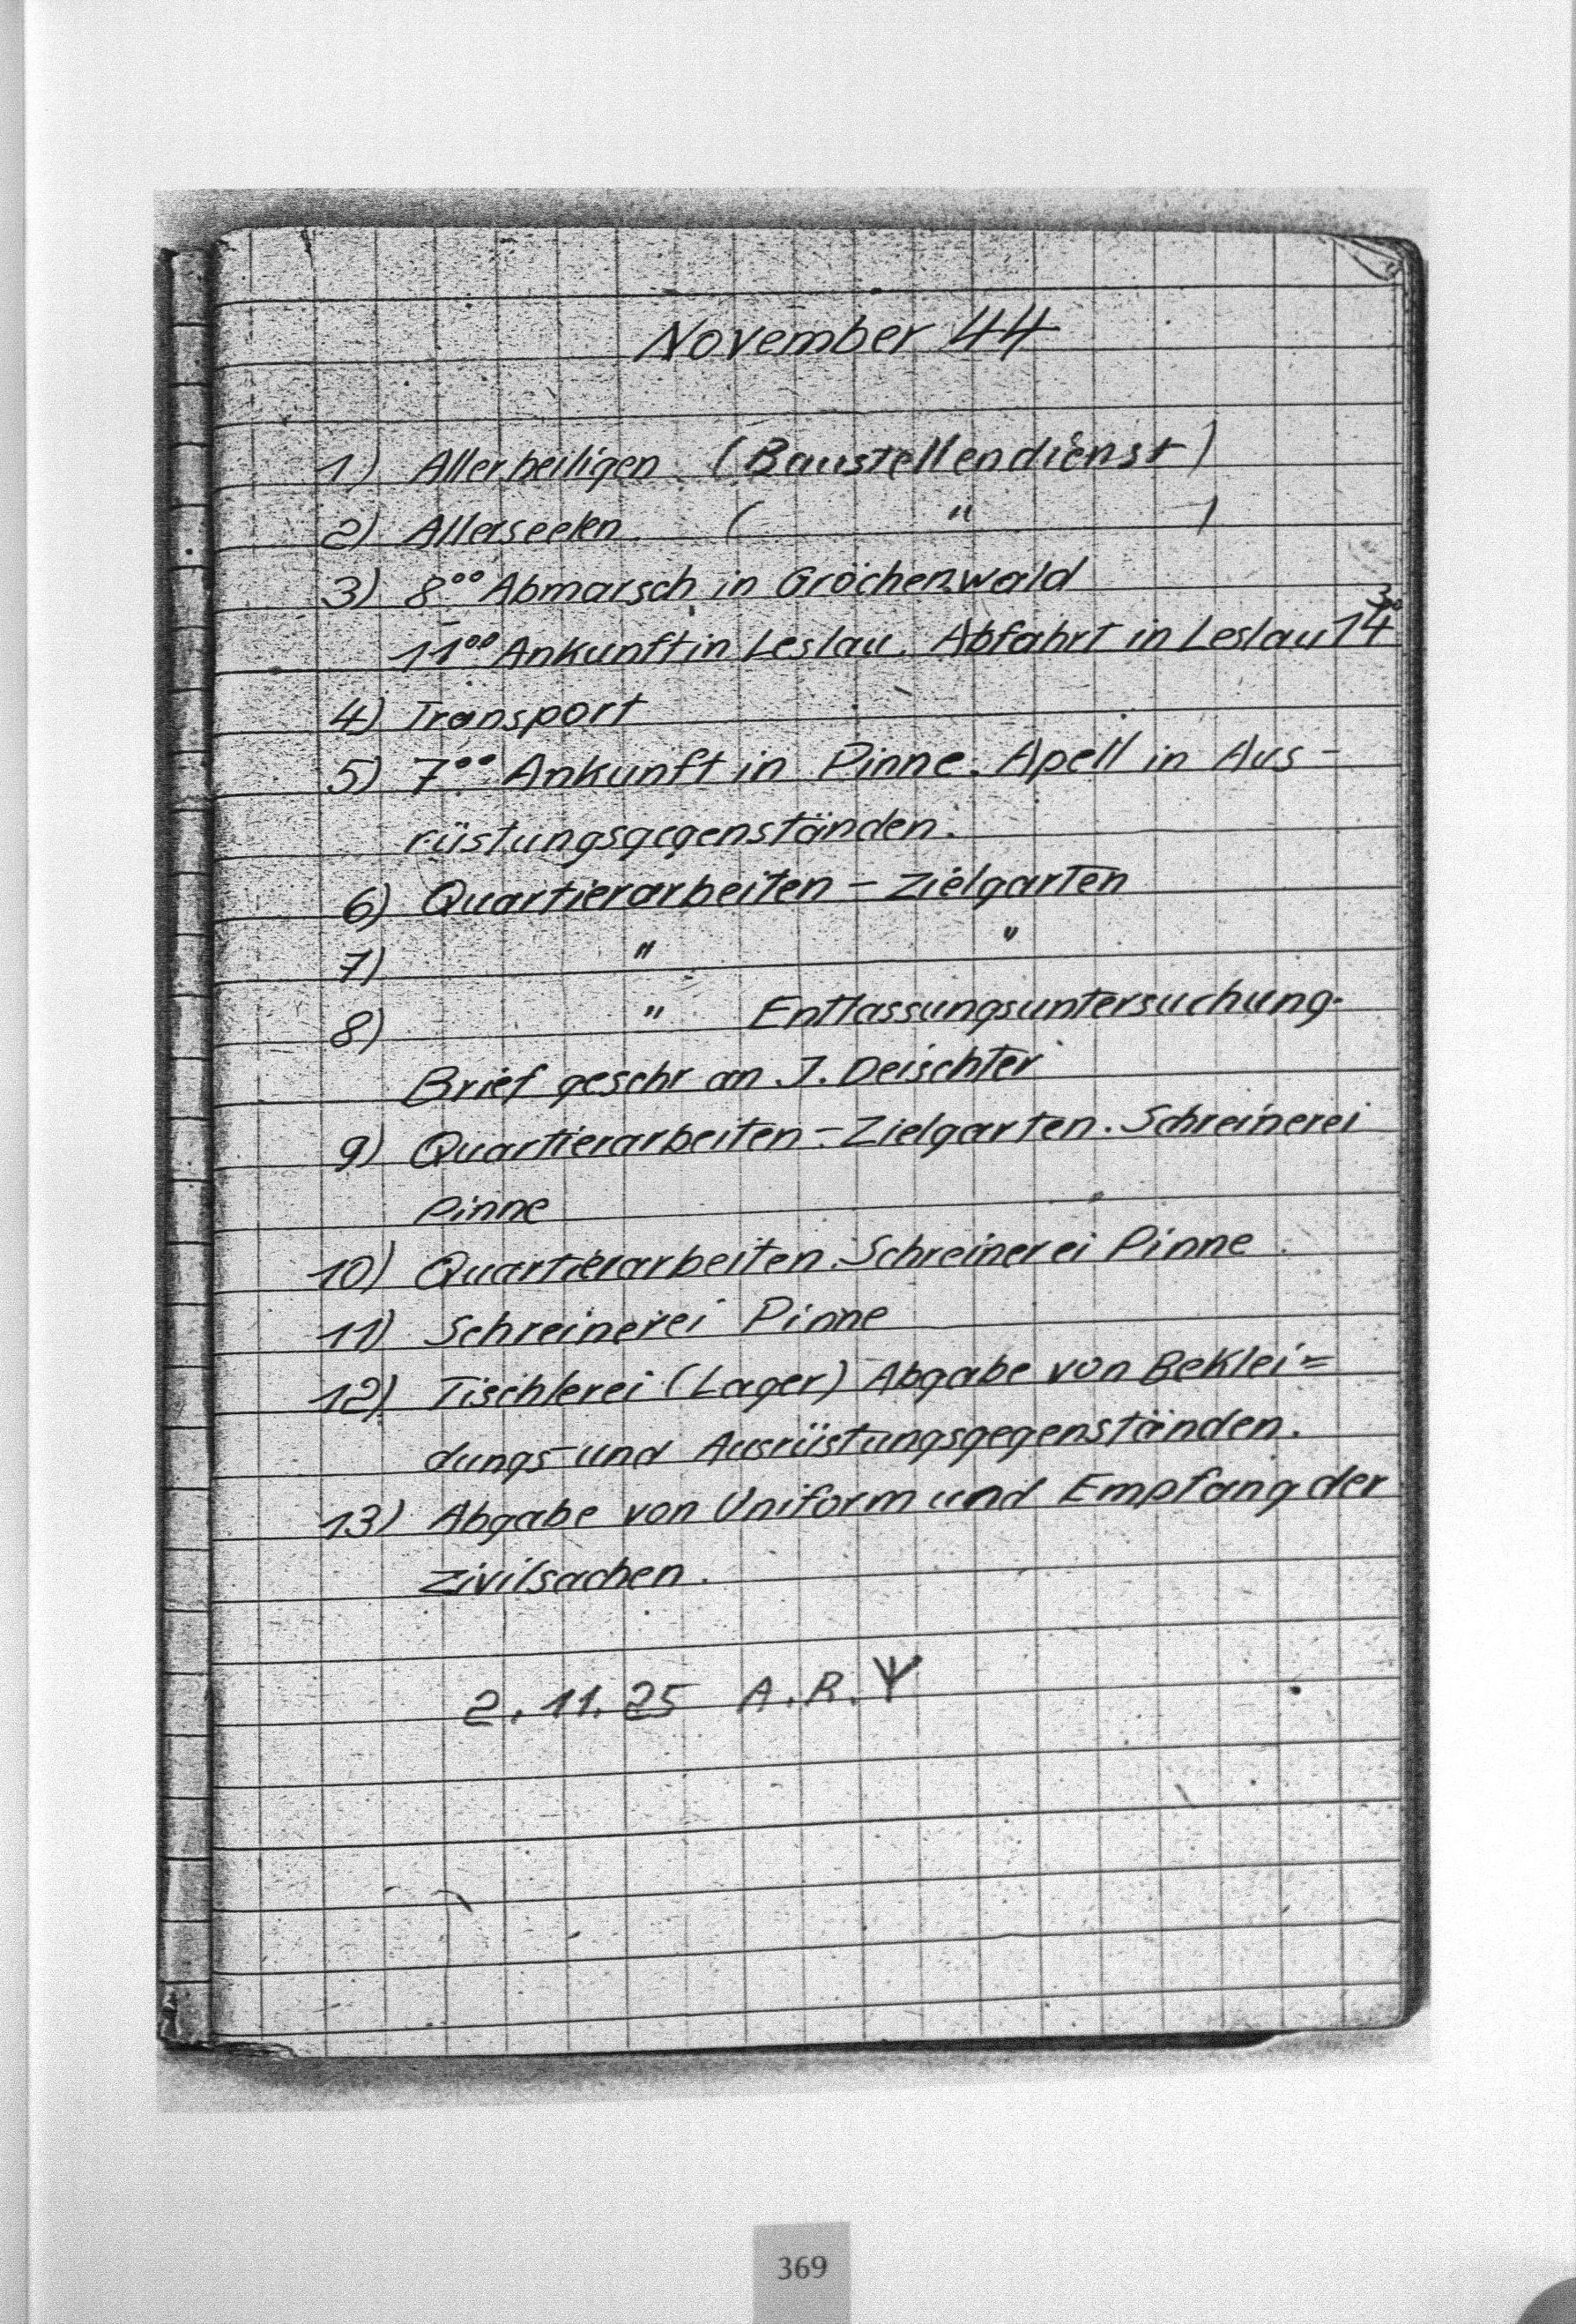 November 44
1) Allerheiligen (Baustellendienst)
2) Allerseelen. ( " )
3) 8⁰⁰ Abmarsch in Gröchenwald
11⁰⁰ Ankunft in Leslau. Abfahrt in Leslau 14³⁰
4) Transport
5) 7⁰⁰ Ankunft in Pinne. Apell in Aus-
rüstungsgegenständen.
6) Quartierarbeiten - Zielgarten
7) " "
8) " Entlassungsuntersuchung.
Brief geschr an J. Deischter
9) Quartierarbeiten - Zielgarten. Schreinerei
Pinne
10) Quartierarbeiten. Schreinerei Pinne
11) Schreinerei Pinne
12) Tischlerei (Lager) Abgabe von Beklei=
dungs- und Ausrüstungsgegenständen.
13) Abgabe von Uniform und Empfang der
Zivilsachen.
2. 11. 25 A. R. Ψ
369